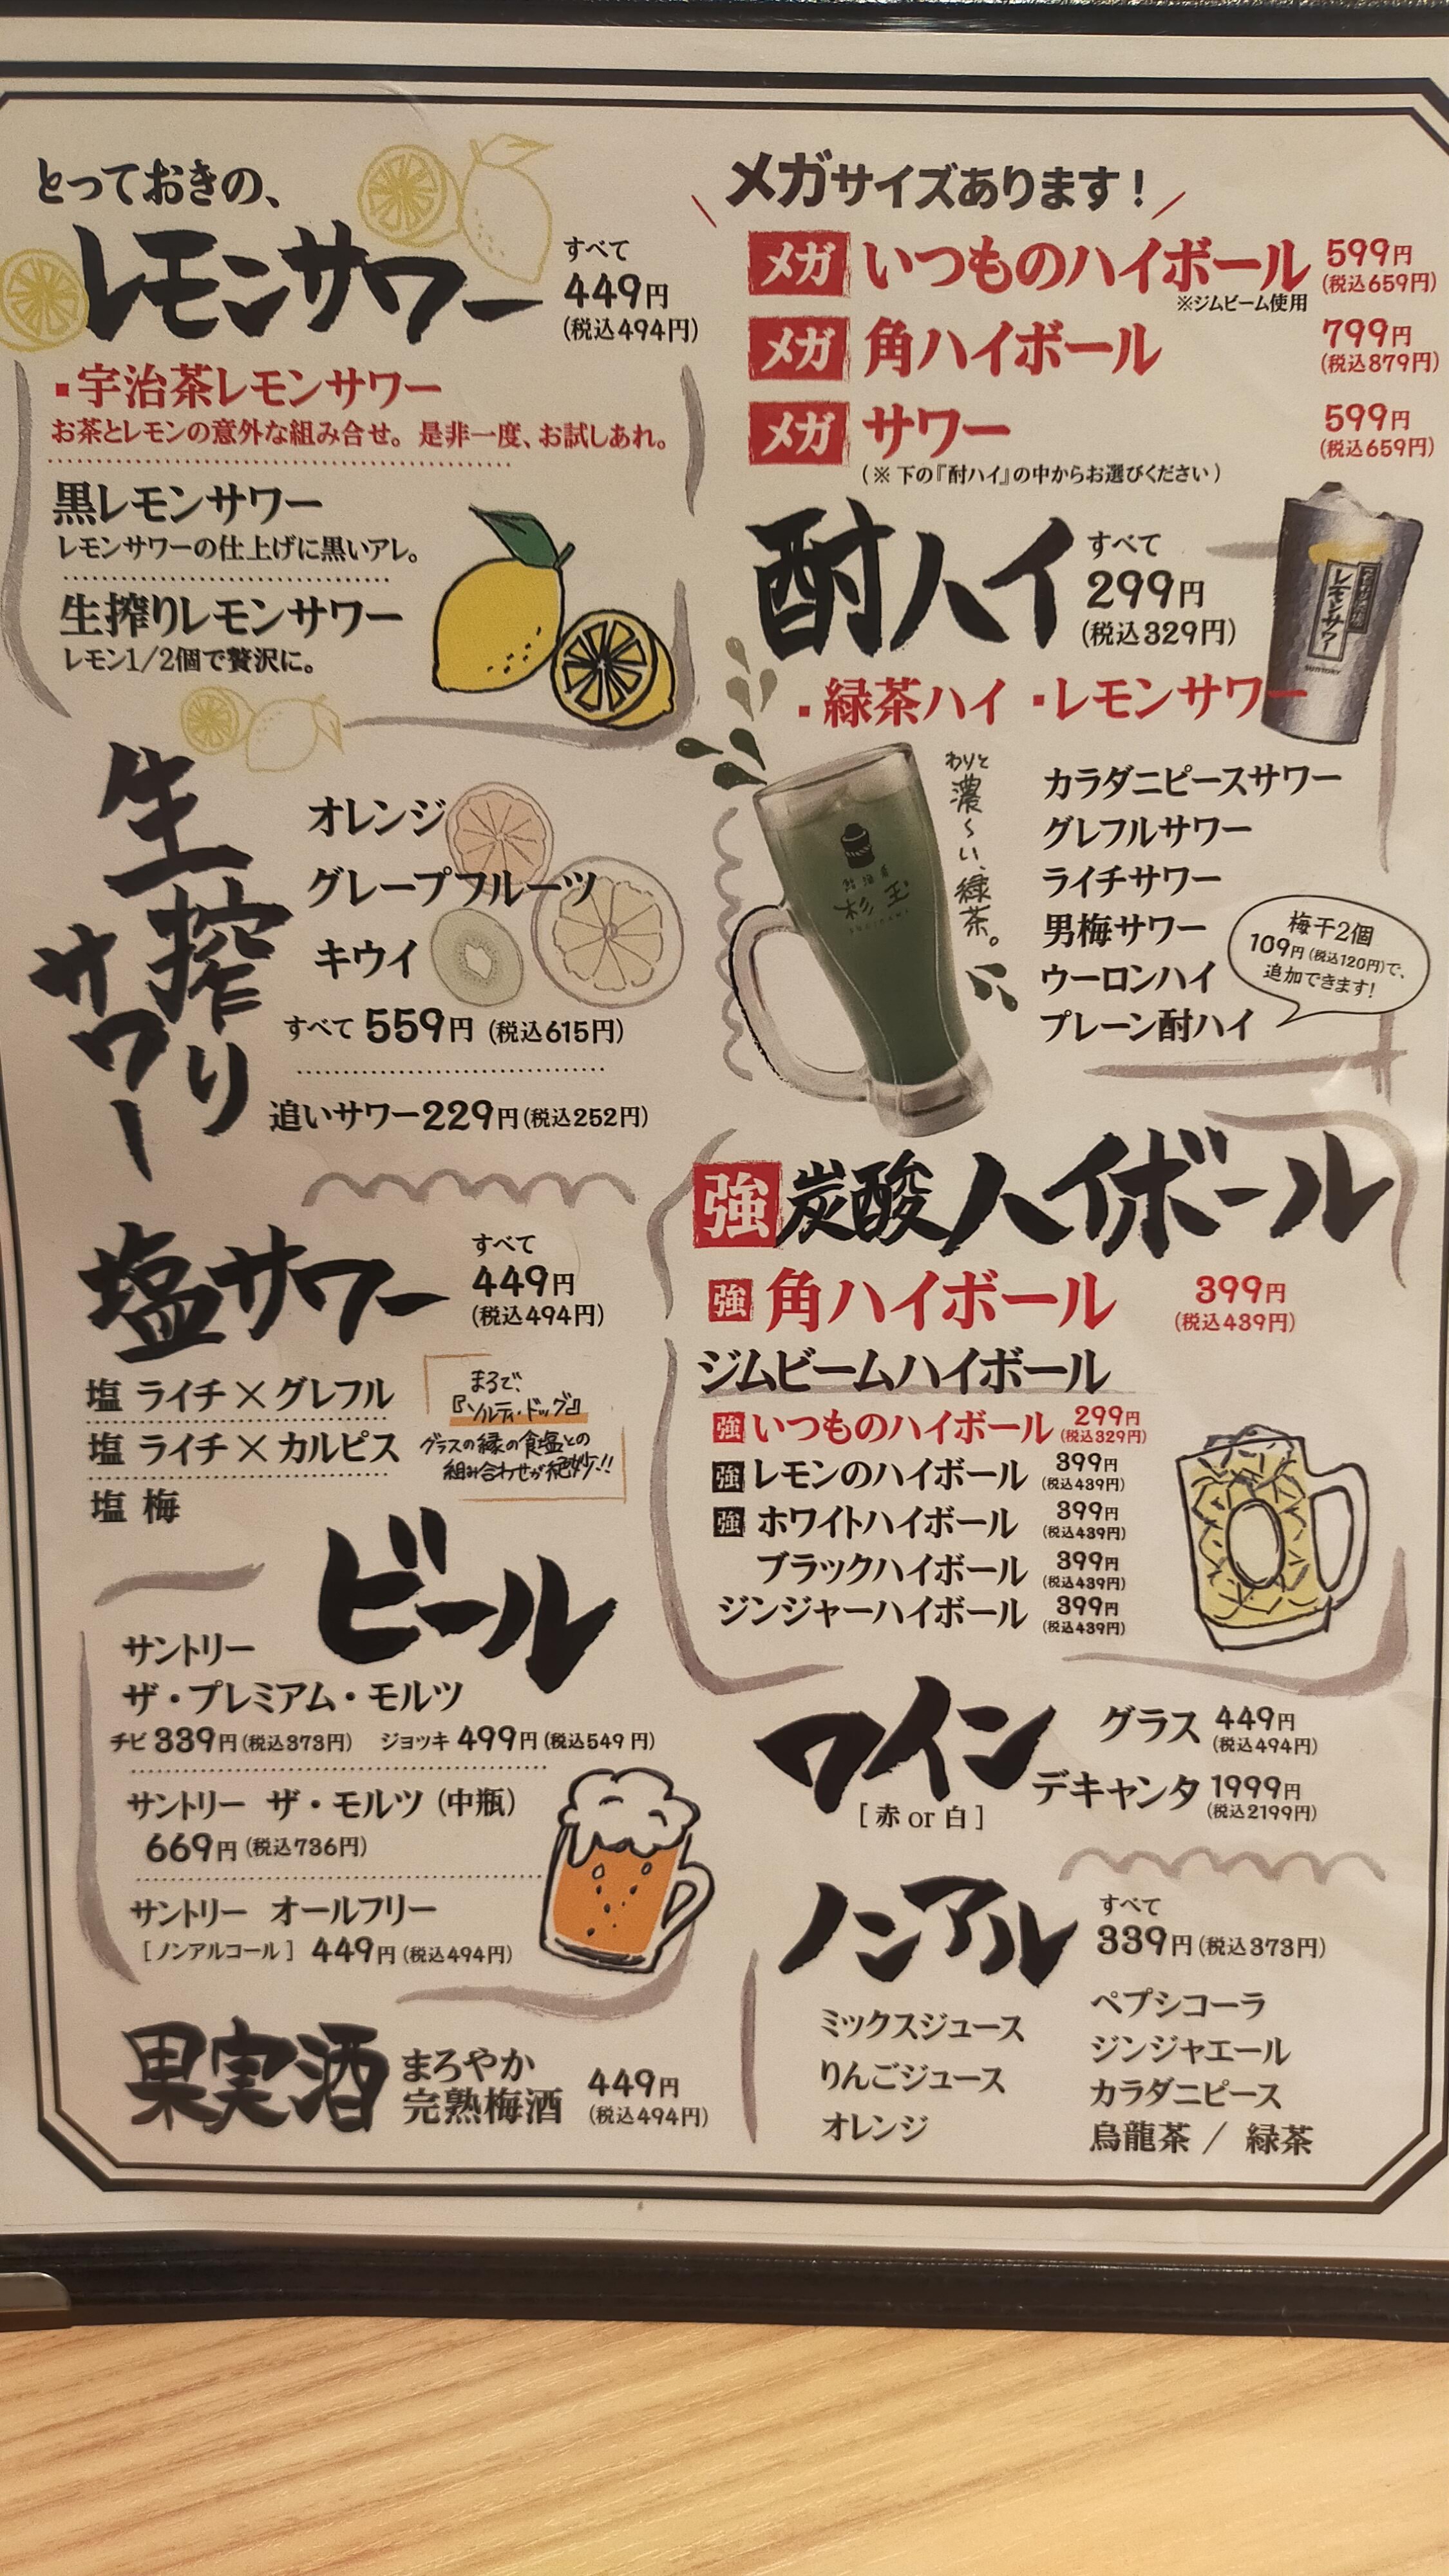 とっておきの、
レモンサワー
すべて
449円
(税込494円)
▪宇治茶レモンサワー
お茶とレモンの意外な組み合せ。是非一度、お試しあれ。
黒レモンサワー
レモンサワーの仕上げに黒いアレ。
生搾りレモンサワー
レモン1/2個で贅沢に。
生搾りサワー
オレンジ
グレープフルーツ
キウイ
すべて 559円 (税込615円)
追いサワー229円(税込252円)
塩サワー
すべて
449円
(税込494円)
塩 ライチ×グレフル
塩 ライチ×カルピス
塩 梅
まるで、
『ソルティ・ドッグ』
グラスの縁の食塩との
組み合わせが絶妙!!
ビール
サントリー
ザ・プレミアム・モルツ
チビ 339円(税込373円) ジョッキ 499円(税込549円)
サントリー ザ・モルツ(中瓶)
669円(税込736円)
サントリー オールフリー
[ノンアルコール] 449円(税込494円)
果実酒
まろやか
完熟梅酒
449円
(税込494円)
メガサイズあります!
メガ いつものハイボール 599円
(税込659円)
※ジムビーム使用
メガ 角ハイボール 799円
(税込879円)
メガ サワー 599円
(税込659円)
(※下の『酎ハイ』の中からお選びください)
酎ハイ
すべて
299円
(税込329円)
▪緑茶ハイ ▪レモンサワー
レモンサワー
SUNTORY
杉玉
わりと
濃〜い、緑茶。
カラダニピースサワー
グレフルサワー
ライチサワー
男梅サワー
ウーロンハイ
プレーン酎ハイ
梅干2個
109円(税込120円)で、
追加できます!
強炭酸ハイボール
強 角ハイボール 399円
(税込439円)
ジムビームハイボール
強 いつものハイボール 299円
(税込329円)
強 レモンのハイボール 399円
(税込439円)
強 ホワイトハイボール 399円
(税込439円)
ブラックハイボール 399円
(税込439円)
ジンジャーハイボール 399円
(税込439円)
ワイン
[赤or白]
グラス 449円
(税込494円)
デキャンタ 1999円
(税込2199円)
ノンアル
すべて
339円(税込373円)
ミックスジュース
りんごジュース
オレンジ
ペプシコーラ
ジンジャエール
カラダニピース
烏龍茶 / 緑茶